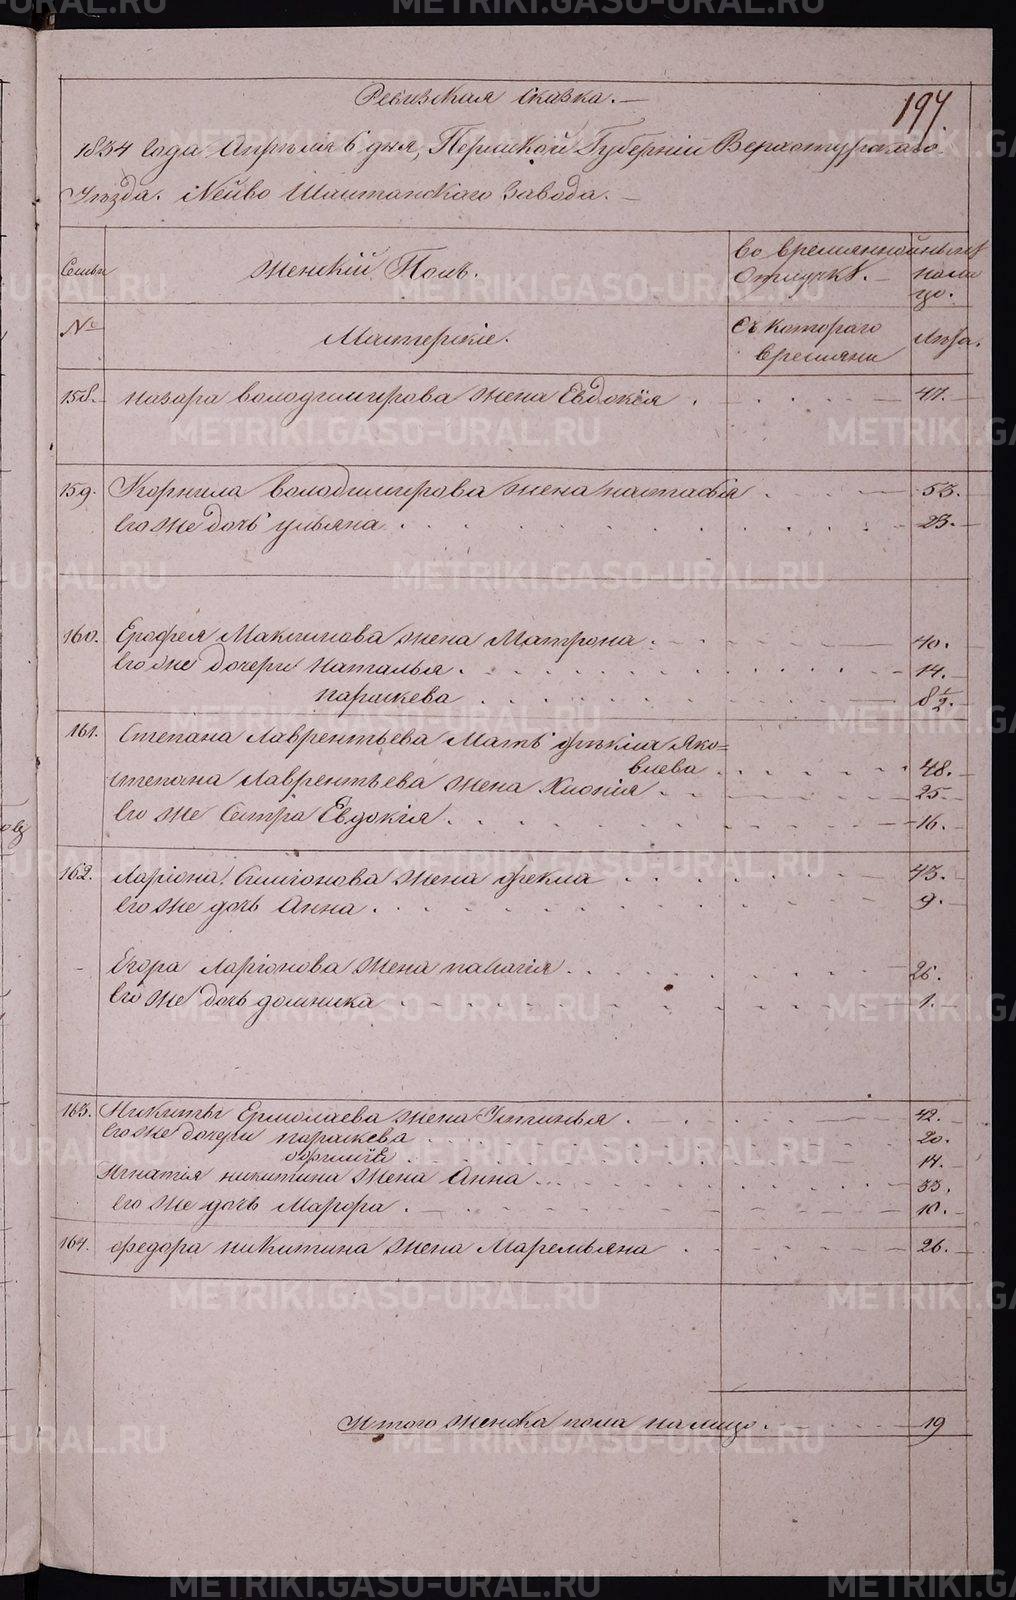 Ревизская Сказка.
197
1834 года Апреля 6 дня, Пермской Губернии Верхотурскаго
Уезда. Нейво Шайтанскаго Завода.
Семьи
Женский Полъ.
Во временной Отлучке.
ныне на лицо.
№
Мастерские.
Съ котораго времяни
Лета.
158. назара володимирова жена Евдокея 47.
159. Корнила володимирова жена настасья 53.
его же дочь ульяна 23.
160. Ерофея Максимова жена Матрона 40.
его же дочери Наталья 14.
параскева 8½.
161. Степана Лаврентьева Мать фекла Яко=
влева 48.
степана Лаврентьева жена Хиония 25.
его же Сестра Евдокия 16.
162. Лариона Симионова жена фекла 43.
его же дочь Анна 9.
Егора Ларионова жена палагия 26.
его же дочь домника 1.
163. Никиты Ермолаева жена Устинья 42.
его же дочери параскева 20.
14.
Игнатия никитина жена Анна 33.
его же дочь Марфа 10.
164. федора никитина жена Маремьяна 26.
Итого женска пола налицо. 19
METRIKI.GASO-URAL.RU